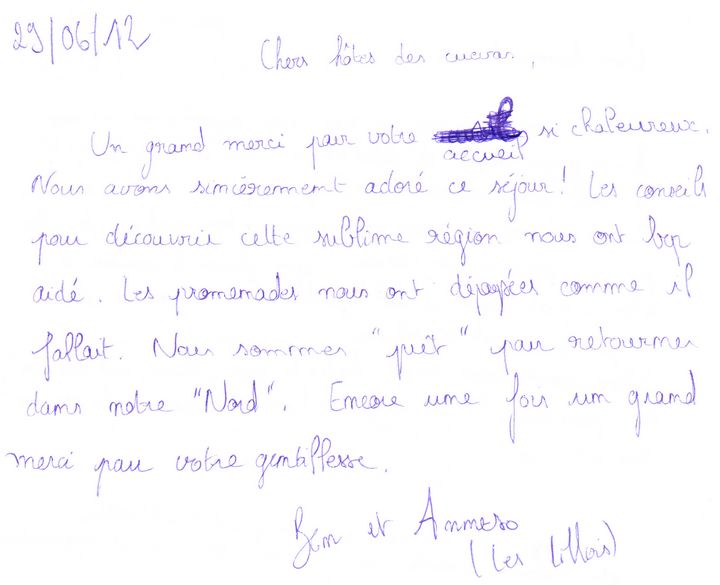 29/06/12
Chers hôtes des cucuron,
Un grand merci pour votre accueil si chaleureux.
Nous avons sincèrement adoré ce séjour! Les conseils
pour découvrir cette sublime région nous ont bcp
aidé. Les promenades nous ont dépaysées comme il
fallait. Nous sommes "prêt" pour retourner
dans notre "Nord". Encore une fois un grand
merci pour votre gentillesse.
Ben et Anneso
(Les Lillois)